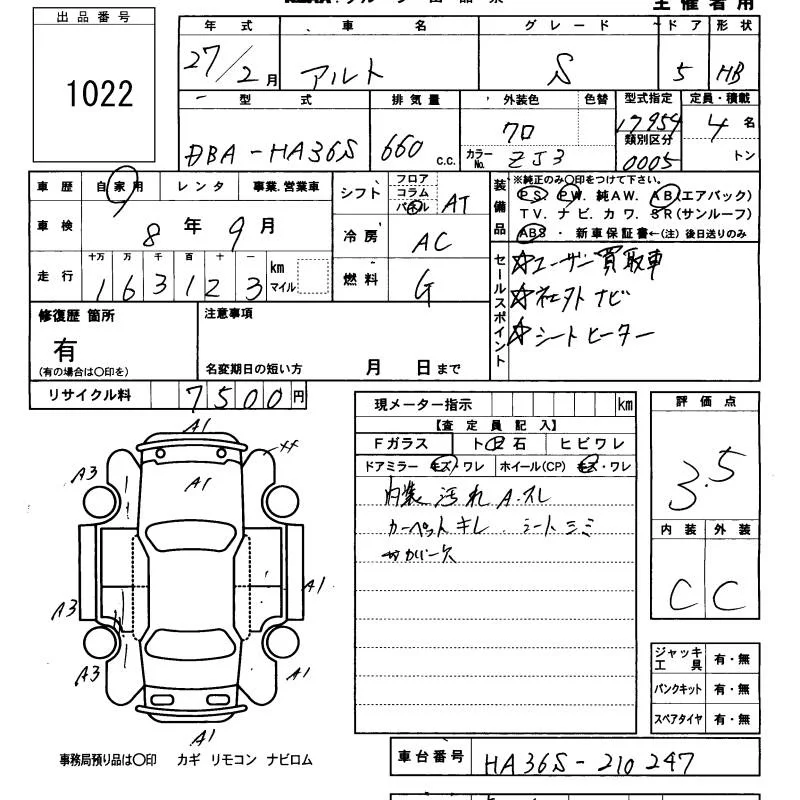 主催者用
出品番号
1022
年式 車名 グレード ドア 形状
27/2月 アルト S 5 HB
型式 排気量 外装色 色替 型式指定 定員・積載
DBA-HA36S 660 c.c. クロ 17954 4名
カラーNo. ZJ3 類別区分 0005 トン
車歴 自家用 レンタ 事業.営業車
車検 8年9月
走行 十万 万 千 百 十 一 km マイル
163123
シフト フロア コラム パネル AT
冷房 AC
燃料 G
装備品 ※純正のみ〇印をつけて下さい.
PS. PW. 純AW. AB(エアバック)
TV. ナビ. カワ. SR(サンルーフ)
ABS ・ 新車保証書←(注)後日送りのみ
セールスポイント
☆ユーザー買取車
☆社外ナビ
☆シートヒーター
修復歴 箇所
有
(有の場合は〇印を)
注意事項
名変期日の短い方 月 日まで
リサイクル料 7500円
現メーター指示 km
【査定員記入】
Fガラス ト石 ヒビワレ
ドアミラー キズ・ワレ ホイール(CP) キズ・ワレ
内装 汚れ A.スレ
カーペットキレ. シートシミ
評価点
3.5
内装 外装
C C
A1
A3
A1
A1
A3
A3
A1
A1
ジャッキ工具 有・無
パンクキット 有・無
スペアタイヤ 有・無
事務局預り品は〇印 カギ リモコン ナビロム
車台番号 HA36S-210247